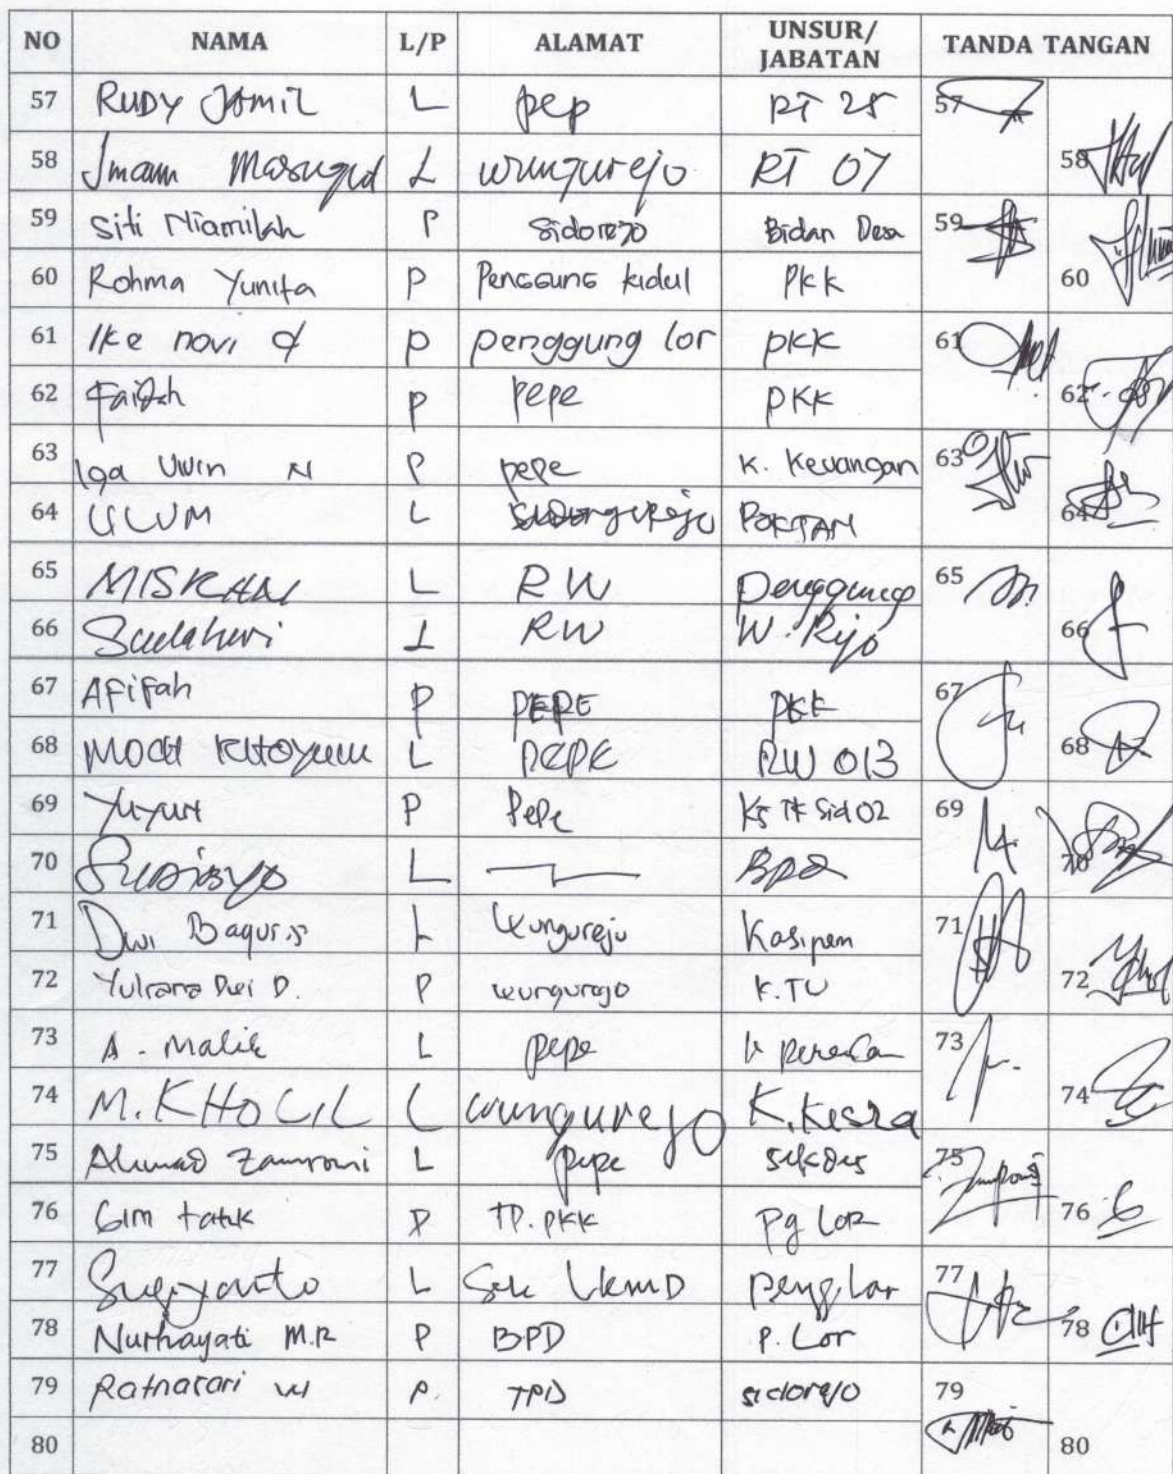 NO NAMA L/P ALAMAT UNSUR/ JABATAN TANDA TANGAN
57 RUDY JAMIL L pep RT 25 57
58 Imam Masrugid L wungurejo RT 07 58
59 Siti Niamilah P Sidorejo Bidan Desa 59
60 Rohma Yunita P Penggung kidul PKK 60
61 Ike novi d P penggung lor PKK 61
62 Faizah P pepe PKK 62
63 Iga Uwin N P pepe K. Keuangan 63
64 ULUM L POKTAN 64
65 MISKAN L RW Penggung 65
66 L RW W. Rejo 66
67 Afifah P PEPE PKK 67
68 MOCH KHOYUM L PEPE RW 013 68
69 Yuyun P Pepe KS TK Sid 02 69
70 L BPD 70
71 Dwi Bagus .S L Wungurejo Kasipem 71
72 Yuliana Dwi D. P wungurejo K.TU 72
73 A. Malik L pepe 73
74 M. KHOLIL L wungurejo K. Kesra 74
75 Ahmad Zamroni L pepe sekdes 75
76 Gim tatuk P TP. PKK Pg LOR 76
77 Sugiyanto L Sek LKMD Pengg. lor 77
78 Nurhayati M.R P BPD P. Lor 78
79 Ratnasari W P. TPD sidorejo 79
80 80